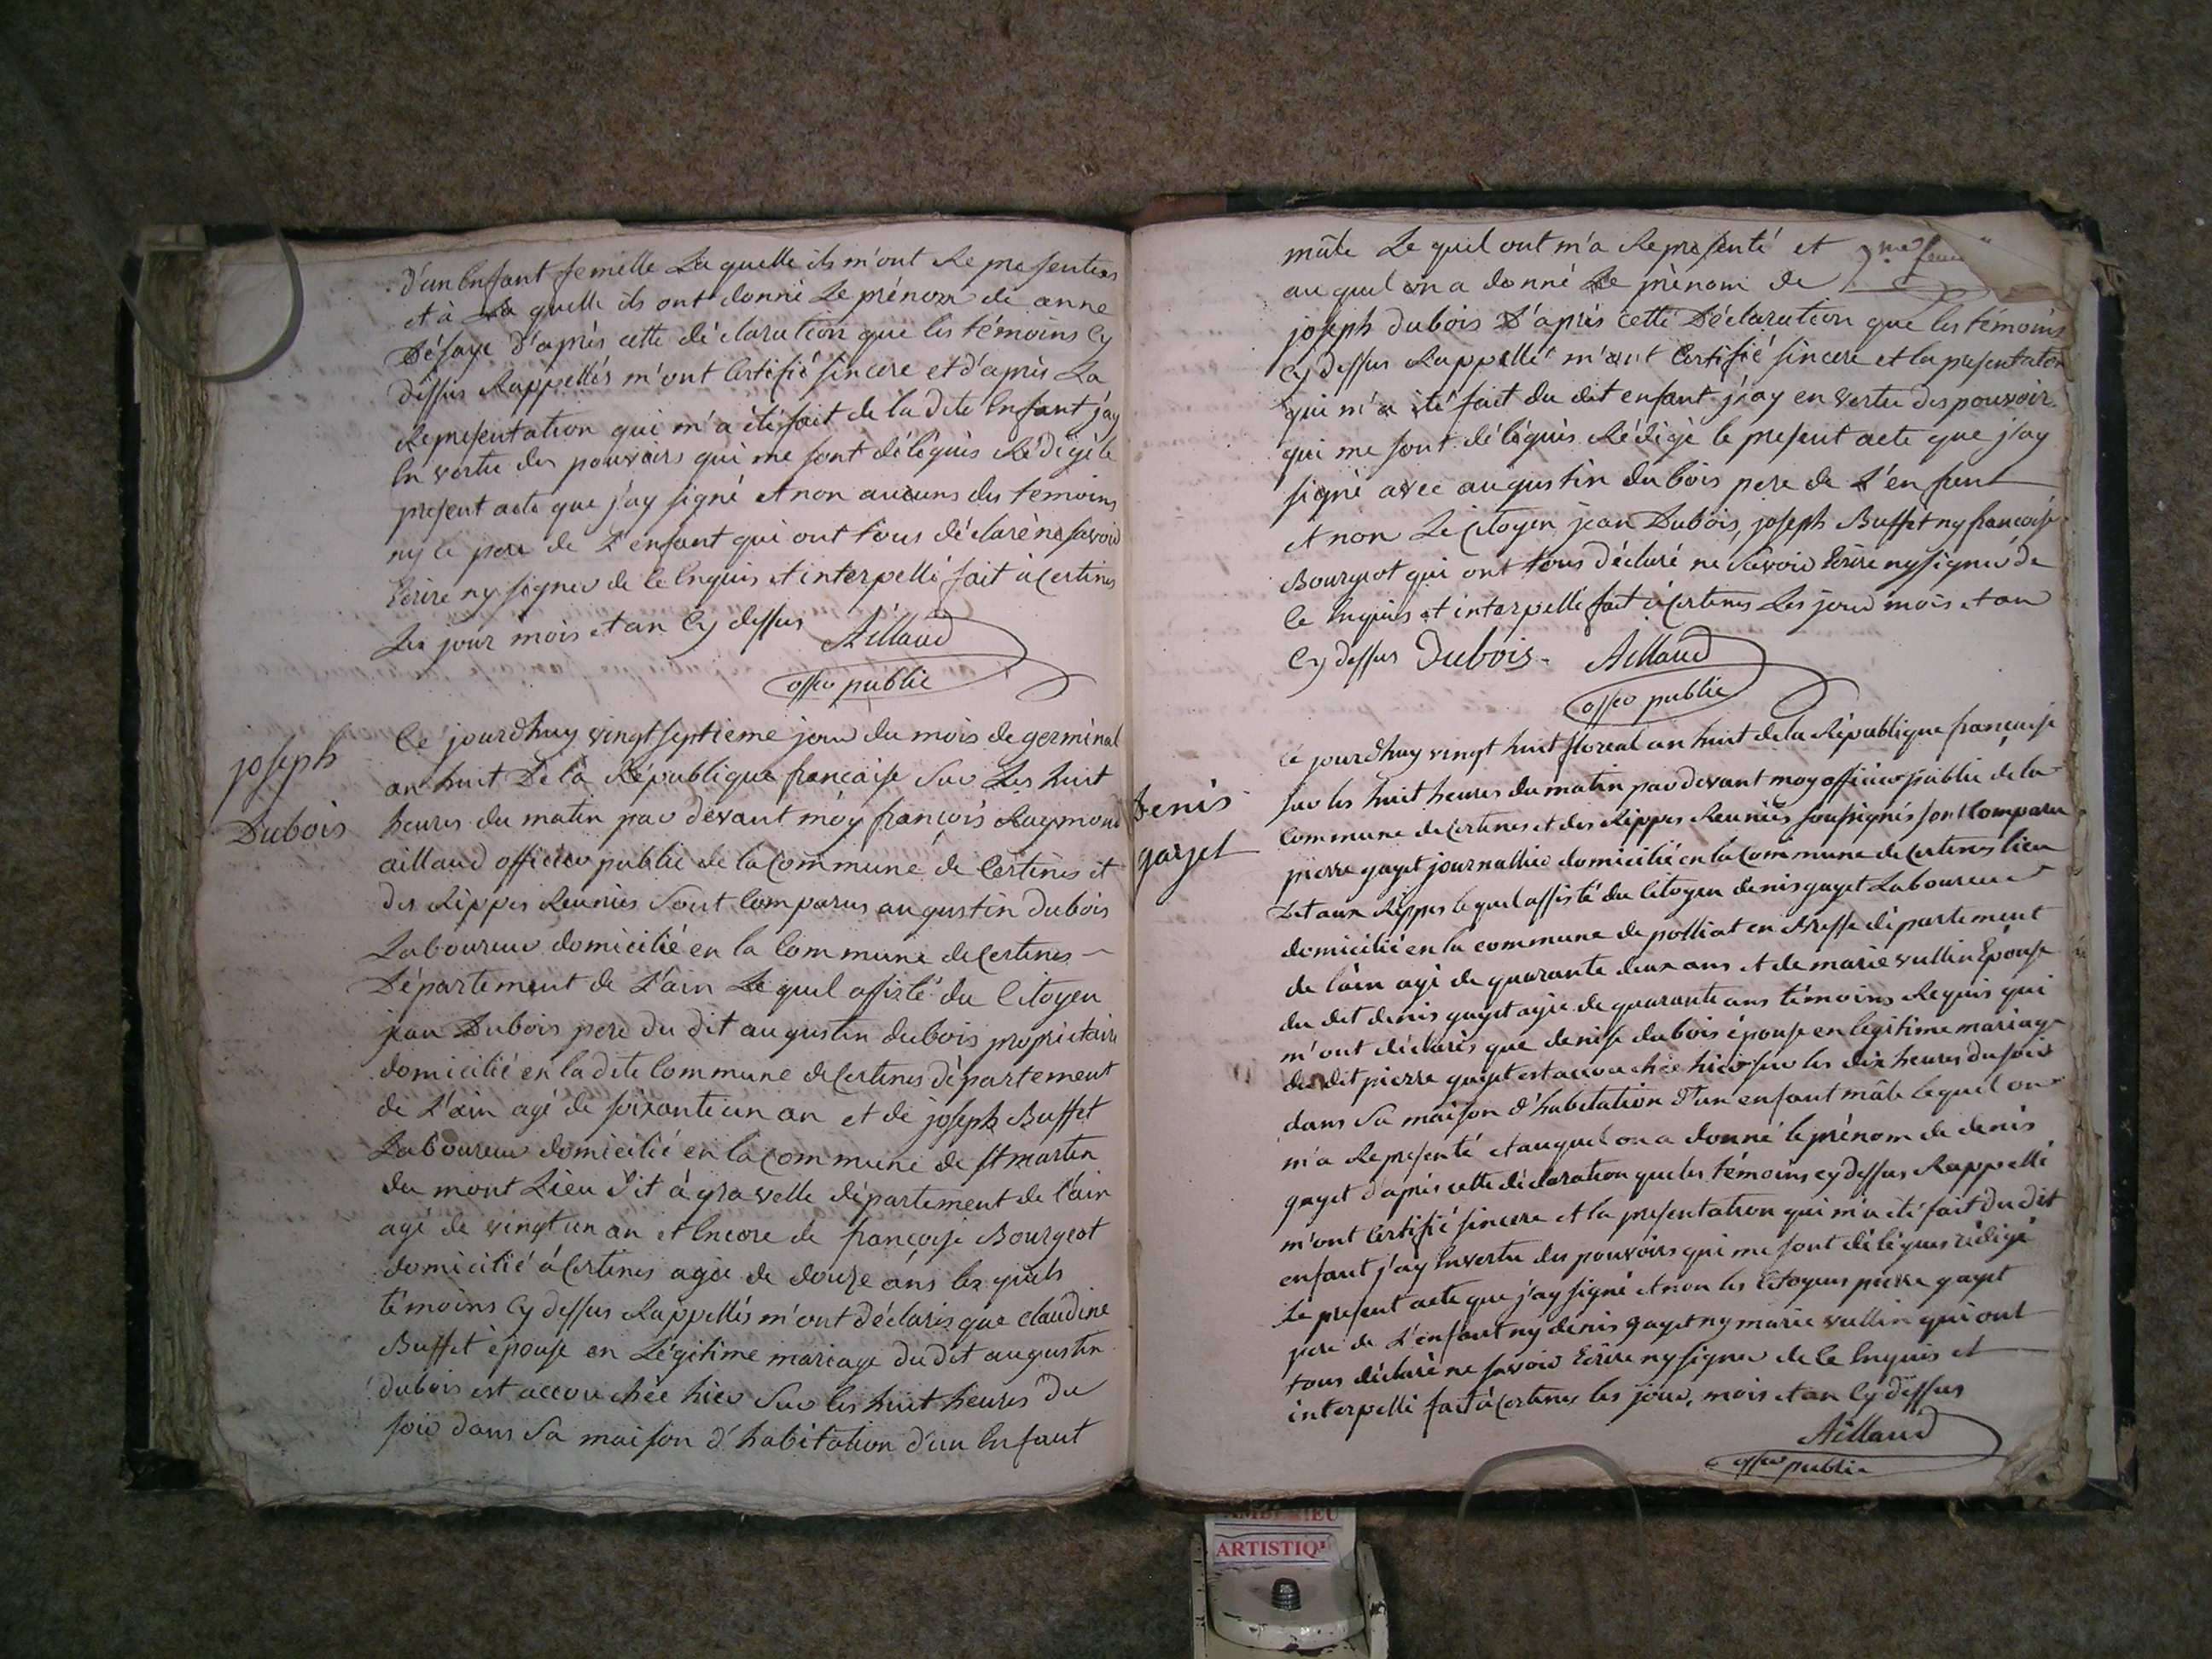 d'un Enfant femelle Laquelle ils m'ont Representées
et à La quelle ils ont donné Le prénom de anne
Désaye d'après cette déclaration que les témoins Cy
dessus Rappellés m'ont Certifié sincere et d'après La
Representation qui m'a été fait de la dite Enfant j'ay
En vertu des pouvoirs qui me sont délégués Rédigé le
present acte que j'ay signé et non aucuns des temoins
ny le pere de L'enfant qui ont tous déclaré ne savoir
Ecrire ny signer de ce Enquis et interpellé fait à Certines
Les jour mois et an Cy dessus Aillaud
offer public
joseph
Dubois
Ce jourdhuy vingt septieme jour du mois de germinal
an huit De la République française Sur Les huit
heures du matin par devant moy françois Raymond
aillaud officier public de la Commune de Certines et
des Rippes Reunies Sont Comparus augustin dubois
Laboureur domicilié en la Commune de Certines
Département de L'ain Le quel assisté du Citoyen
jean Dubois pere du dit augustin dubois propriétaire
domicilié en la dite Commune de Certines département
de L'ain agé de soixante un an et de joseph Buffet
Laboureur domicilié en la Commune de st martin
du mont Lieu Dit à gravelle département de l'ain
agé de vingt un an et Encore de françoise Bourgeot
domicilié à Certines agée de douze ans les quels
témoins Cy dessus Rappellés m'ont déclarés que claudine
Buffet épouse en Légitime mariage du dit augustin
dubois est accouchée hier Sur les huit heures du
soir dans Sa maison d'habitation d'un Enfant
mâle Le quel ont m'a Representé et
au quel on a donné Le prénom de
joseph dubois D'après cette Déclaration que les témoins
Cy dessus Rappellé m'ont Certifié sincere et la presentation
qui m'a été fait du dit enfant j'ay en vertu des pouvoir
qui me sont délégués Rédigé le present acte que j'ay
signé avec augustin dubois pere de L'enfent
et non Le Citoyen jean Dubois, joseph Buffet ny françoise
Bourgeot qui ont tous déclaré ne Savoir Ecrire ny signer de
ce Enquis et interpellé fait à Certines Les jour mois et an
Cy dessus Dubois. Aillaud
offer public
denis
gayet
Ce jourdhuy vingt huit floreal an huit de la République française
sur les huit heures du matin par devant moy officier public de la
Commune de Certines et des Rippes Reunies soussignés sont Comparu
pierre gayet journallier domicilié en la Commune de Certines lieu
Dit aux Rippes lequel assisté du Citoyen denis gayet Laboureur
domicilié en la commune de polliat en Bresse département
de l'ain agé de quarante deux ans et de marie vullin Epouse
du dit denis gayet agée de quarante ans témoins Requis qui
m'ont déclarés que denise dubois épouse en légitime mariage
du dit pierre gayet est accouchée hier sur les dix heures du soir
dans Sa maison d'habitation d'un enfant mâle lequel on
m'a Representé et auquel on a donné le prénom de denis
gayet d'après cette déclaration que les témoins cy dessus Rappellé
m'ont Certifié sincere et la presentation qui m'a été fait du dit
enfant j'ay En vertu des pouvoirs qui me sont délégués rédigé
Le present acte que j'ay signé et non les Citoyens pierre gayet
pere de L'enfant ny denis gayet ny marie vullin qui ont
tous déclaré ne savoir Ecrire ny signer de ce Enquis et
interpellé fait à Certines les jour, mois et an Cy dessus
Aillaud
offer public
AMBERIEU
ARTISTIQ